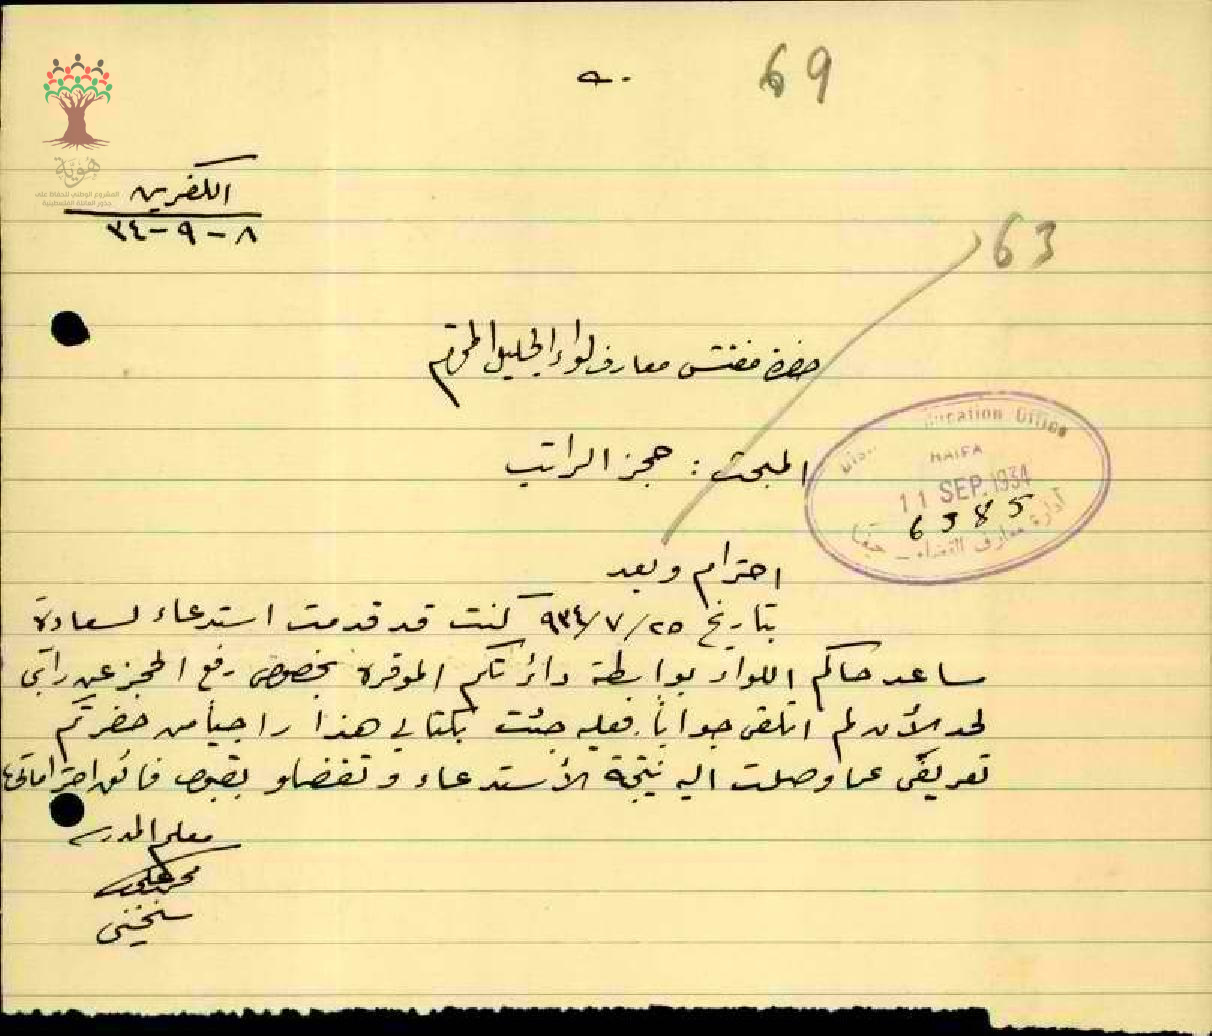 69
هُويّة
المشروع الوطني للحفاظ على
جذور العائلة الفلسطينية
الكفرين
٨-٩-٣٤
63
حضرة مفتش معارف لواء الجليل المحترم
المبحث: حجز الراتب
Education Office
HAIFA
11 SEP. 1934
6385
ادارة معارف القضاء - حيفا
احترام وبعد
بتاريخ ٢٥/٧/٩٣٤ كنت قد قدمت استدعاء لسعادة
مساعد حاكم اللواء بواسطة دائرتكم الموقرة بخصوص رفع الحجز عن راتبي
لحد الأن لم اتلقى جواباً. فعليه جئت بكتابي هذا راجياً من حضرتكم
تعريفي عما وصلت اليه نتيجة الأستدعاء وتفضلو بقبول فائق احتراماتي
معلم المدرسة
محمد علي
سخنيني